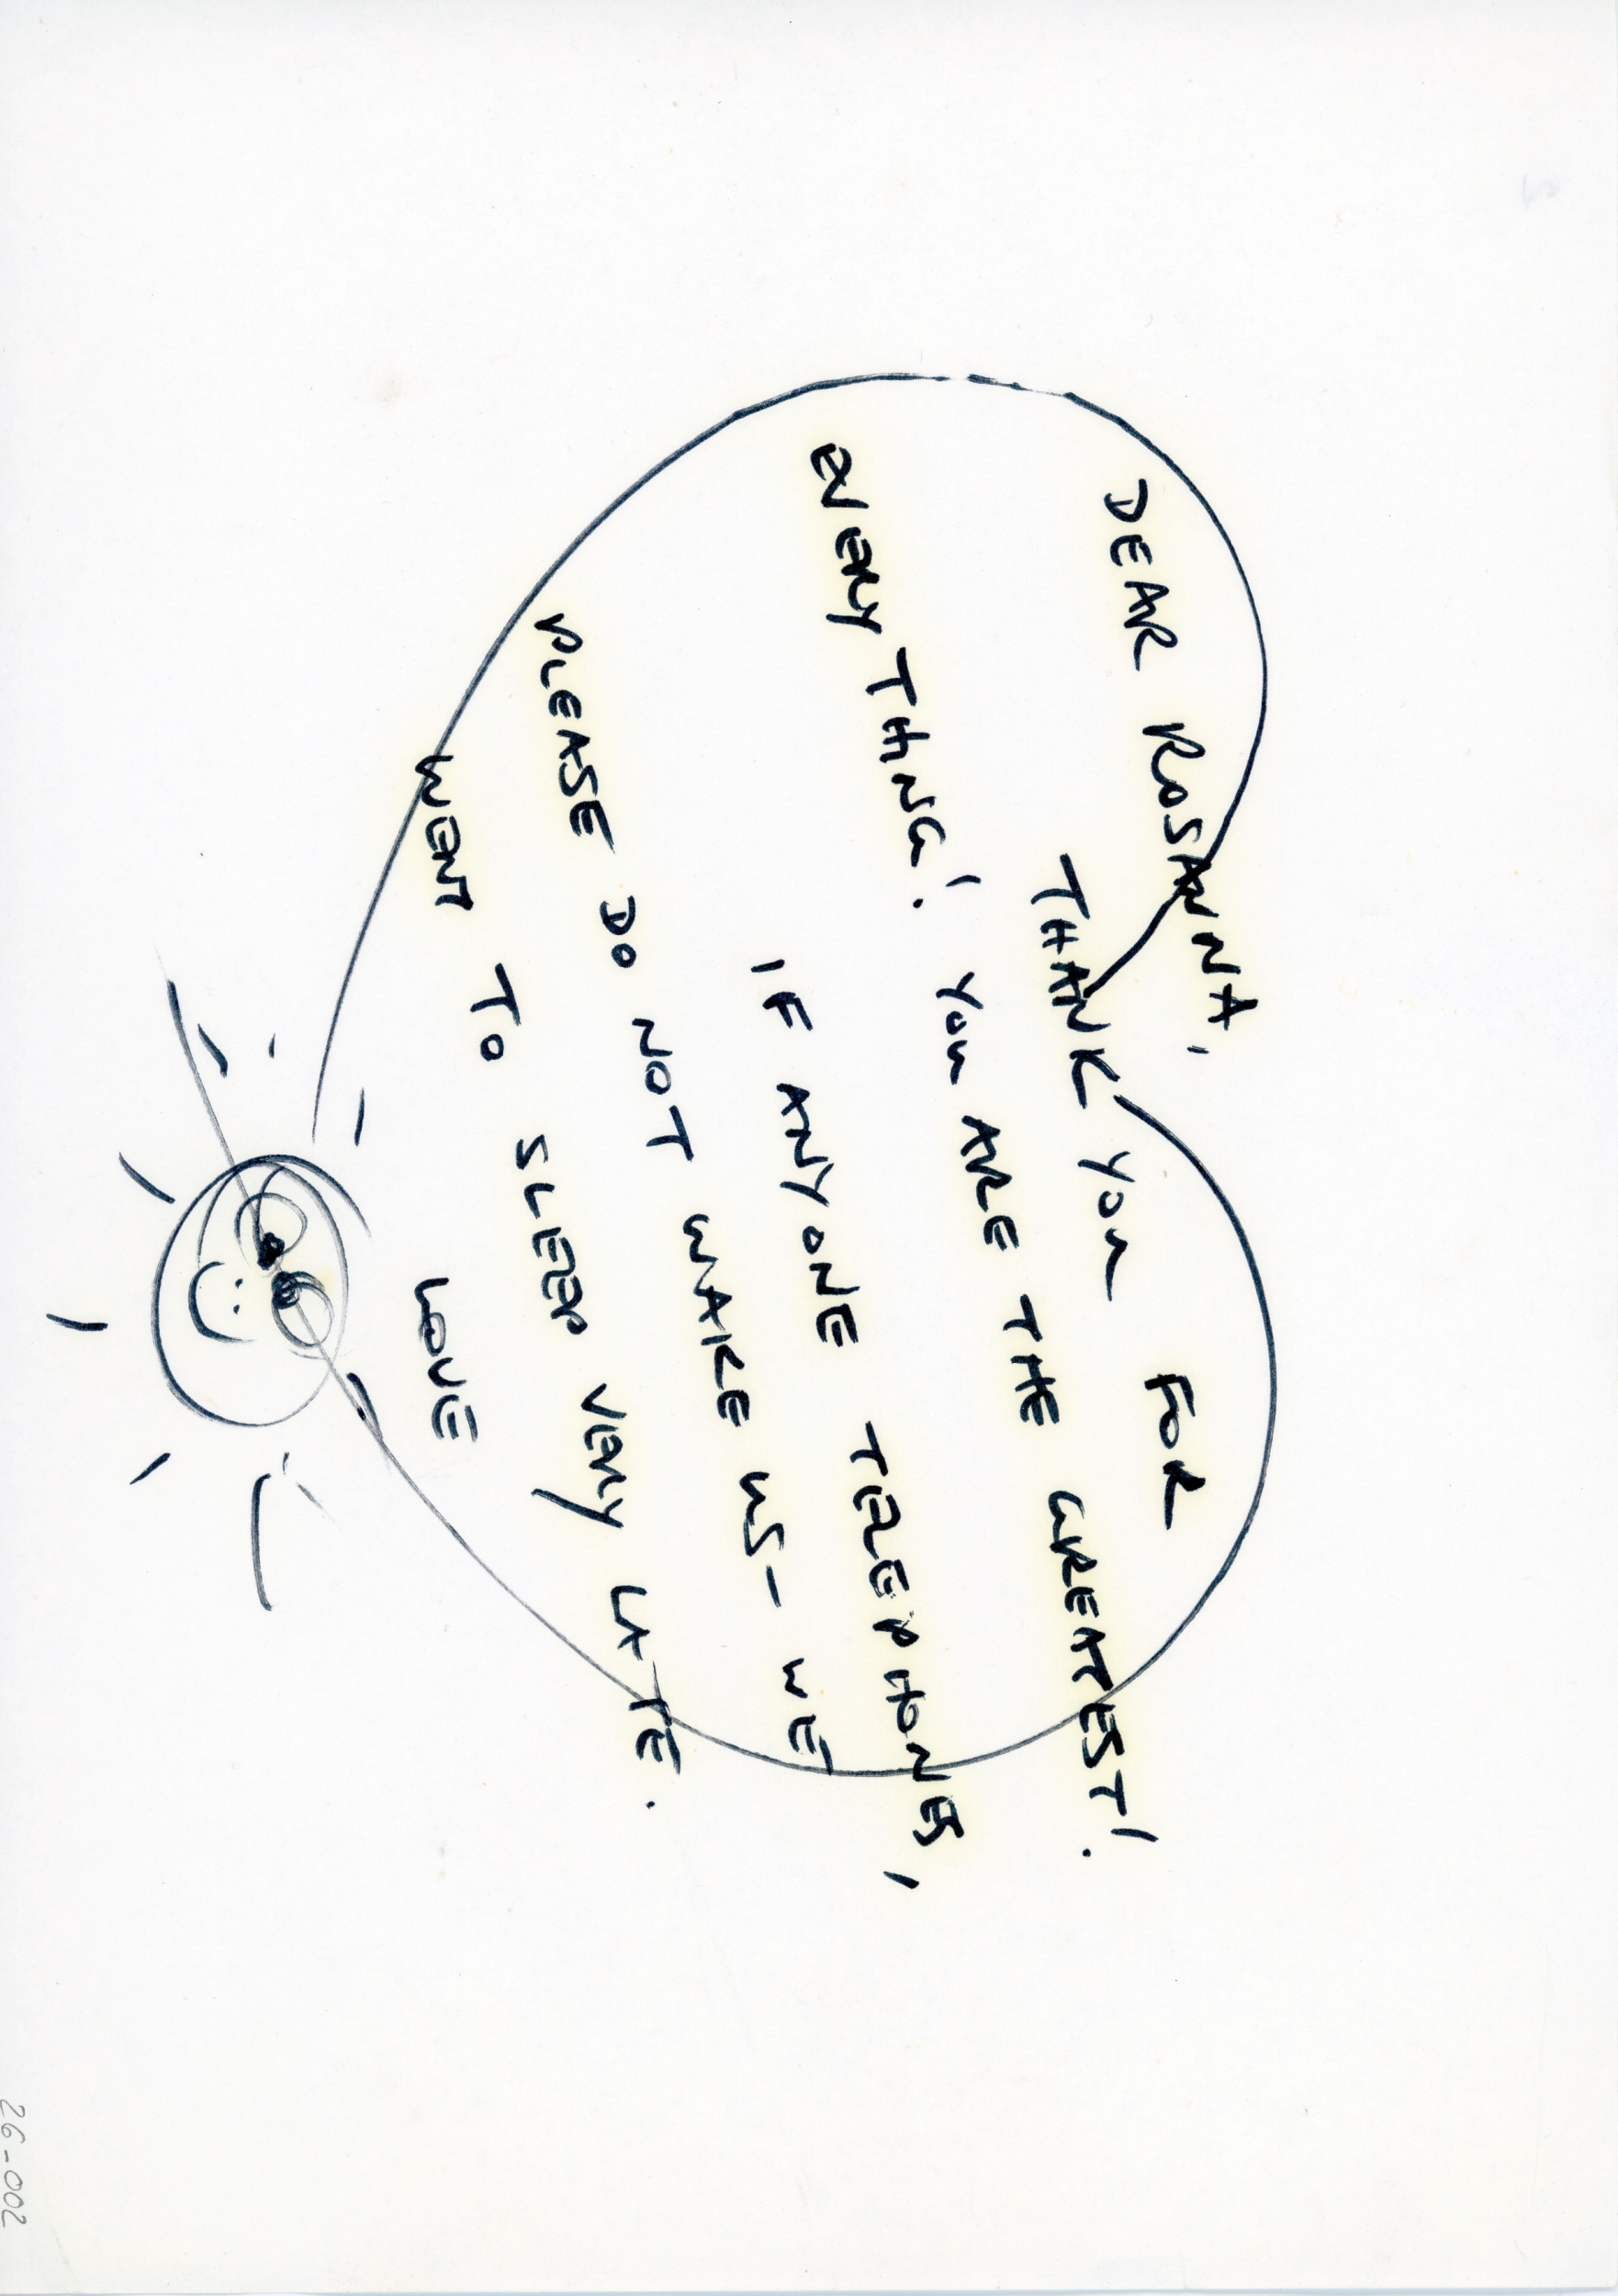 DEAR ROSANNA,
THANK YOU FOR
EVERY THNG! YOU ARE THE GREATEST!
IF ANYONE TELEPHONES,
PLEASE DO NOT WAKE US - WE
WENT TO SLEEP VERY LATE.
LOVE
26-002